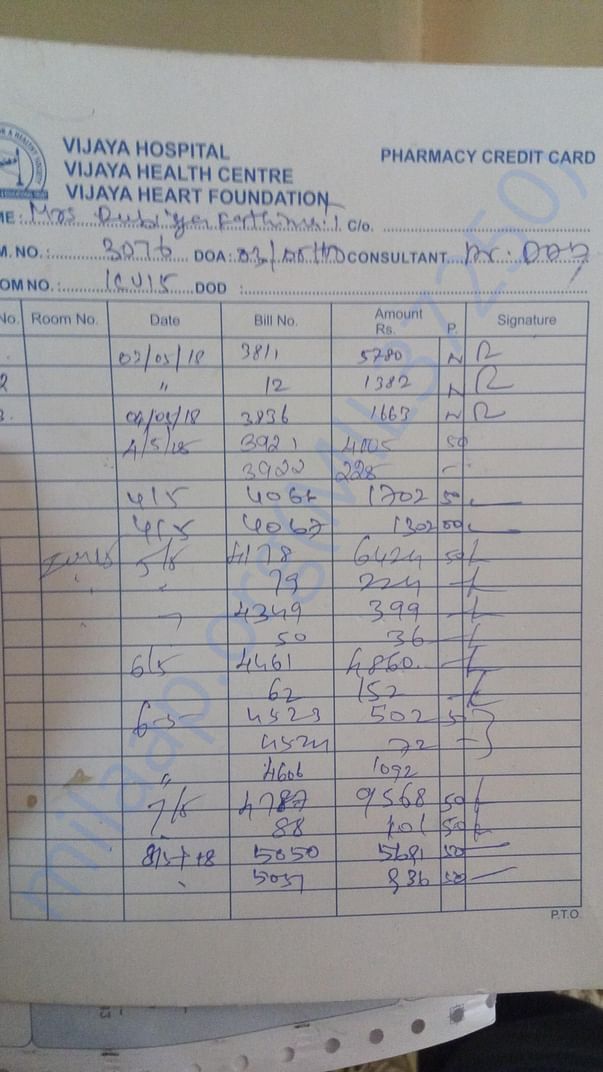 VIJAYA HOSPITAL
VIJAYA HEALTH CENTRE
VIJAYA HEART FOUNDATION
PHARMACY CREDIT CARD
ME: Mrs C/o.
M. NO.: 3076 DOA: 03/ CONSULTANT Dr.
OM NO.: ICU15 DOD :
No. Room No. Date Bill No. Amount Rs. P. Signature
03/05/18 3811 5780 N
2 " 12 1382 N
3. 04/05/18 3836 1663 N
4/5/18 3921 4005 50
3922 228 -
4/5 1702 50
4/5 4067 1302 00
5/5 4178 6424 50
" 79 224
4349 399
50 36
6/5 4461 4860
62 152
6-5- 4523 502 50
4524 72
" 4606 1092
7/5 4787 9568 50
88 101 50
8/5 5050 5681 50
5051 836 50
P.T.O.
milaap.org